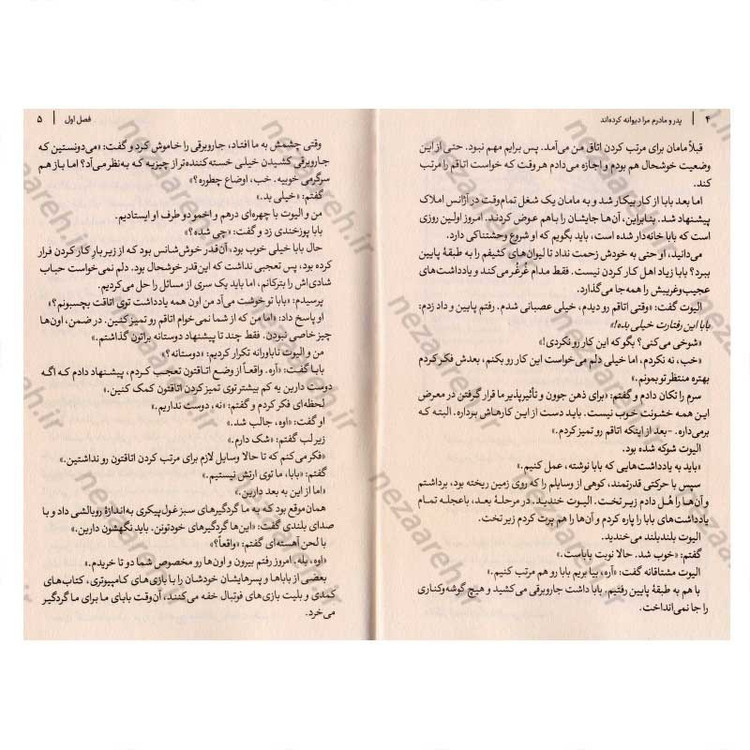 ۴ | پدر و مادرم مرا دیوانه کرده‌اند
قبلاً مامان برای مرتب کردن اتاق من می‌آمد. پس برایم مهم نبود. حتی از این
وضعیت خوشحال هم بودم و اجازه می‌دادم هر وقت که خواست اتاقم را مرتب
کند.
اما بعد بابا از کار بیکار شد و به مامان یک شغل تمام‌وقت در آژانس املاک
پیشنهاد شد. بنابراین، آن‌ها جایشان را با هم عوض کردند. امروز اولین روزی
است که بابا خانه‌دار شده است، باید بگویم که او شروع وحشتناکی دارد.
می‌دانید، او حتی به خودش زحمت نداد تا لیوان‌های کثیفم را به طبقهٔ پایین
ببرد؟ بابا زیاد اهل کار کردن نیست. فقط مدام غُرغُر می‌کند و یادداشت‌های
عجیب‌وغریبش را همه‌جا می‌گذارد.
الیوت گفت: «وقتی اتاقم رو دیدم، خیلی عصبانی شدم. رفتم پایین و داد زدم:
بابا این رفتارت خیلی بده!»
«شوخی می‌کنی؟ بگو که این کار رو نکردی!»
«خب، نه نکردم، اما خیلی دلم می‌خواست این کار رو بکنم، بعدش فکر کردم
بهتره منتظر تو بمونم.»
سرم را تکان دادم و گفتم: «برای ذهن جوون و تأثیرپذیر ما قرار گرفتن در معرض
این همه خشونت خوب نیست. باید دست از این کارهاش برداره. البته که
برمی‌داره. -بعد از اینکه اتاقم رو تمیز کردم.»
الیوت شوکه شده بود.
«باید به یادداشت‌هایی که بابا نوشته، عمل کنیم.»
سپس با حرکتی قدرتمند، کوهی از وسایلم را که روی زمین ریخته بود، برداشتم
و آن‌ها را هُل دادم زیر تخت. الیوت خندید. در مرحلهٔ بعد، با عجله تمام
یادداشت‌های بابا را پاره کردم و آن‌ها را هم پرت کردم زیر تخت.
الیوت بلندبلند می‌خندید.
گفتم: «خوب شد. حالا نوبت باباست.»
الیوت مشتاقانه گفت: «آره، بیا بریم بابا رو هم مرتب کنیم.»
با هم به طبقهٔ پایین رفتیم. بابا داشت جاروبرقی می‌کشید و هیچ گوشه‌وکناری
را جا نمی‌انداخت.
فصل اول | ۵
وقتی چشمش به ما افتاد، جاروبرقی را خاموش کرد و گفت: «می‌دونستین که
جاروبرقی کشیدن خیلی خسته‌کننده‌تر از چیزیه که به‌نظر می‌آد؟ اما باز هم
سرگرمی خوبیه. خب، اوضاع چطوره؟»
گفتم: «خیلی بد.»
من و الیوت با چهره‌ای درهم و اخمو دو طرف او ایستادیم.
بابا پوزخندی زد و گفت: «چی شده؟»
حال بابا خیلی خوب بود، آن‌قدر خوش‌شانس بود که از زیر بار کار کردن فرار
کرده بود، پس تعجبی نداشت که این‌قدر خوشحال بود. دلم نمی‌خواست حباب
شادی‌اش را بترکانم، اما باید یک سری از مسائل را حل می‌کردیم.
پرسیدم: «بابا تو خوشت می‌آد من اون همه یادداشت توی اتاقت بچسبونم؟»
او پاسخ داد: «اما من که از شما نمی‌خوام اتاقم رو تمیز کنین. در ضمن، اون‌ها
چیز خاصی نبودن. فقط چند تا پیشنهاد دوستانه براتون گذاشتم.»
من و الیوت ناباورانه تکرار کردیم: «دوستانه؟»
بابا گفت: «آره. واقعاً از وضع اتاقتون تعجب کردم، پیشنهاد دادم که اگه
دوست دارین یه کم بیشتر توی تمیز کردن اتاقتون کمک کنین.»
لحظه‌ای فکر کردم و گفتم: «نه، دوست نداریم.»
او گفت: «اوه، جالب شد.»
زیر لب گفتم: «شک دارم.»
«فکر می‌کنم که تا حالا وسایل لازم برای مرتب کردن اتاقتون رو نداشتین.»
گفتم: «بابا، ما توی ارتش نیستیم.»
«اما از این به بعد دارین.»
همان‌موقع بود که به ما گردگیرهای سبز غول‌پیکری به‌اندازهٔ روبالشی داد و با
صدای بلندی گفت: «این‌ها گردگیرهای خودتونن، باید نگهشون دارین.»
با لحن آهسته‌ای گفتم: «واقعاً؟»
«اوه، بله. امروز رفتم بیرون و اون‌ها رو مخصوص شما دو تا خریدم.»
بعضی از باباها و پسرهایشان خودشان را با بازی‌های کامپیوتری، کتاب‌های
کمدی و بلیت بازی‌های فوتبال خفه می‌کنند، آن‌وقت بابای ما برای ما گردگیر
می‌خرد.
nezaareh.ir